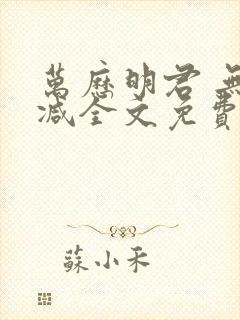 萬歷明君 無
減全文免費
蘇小禾